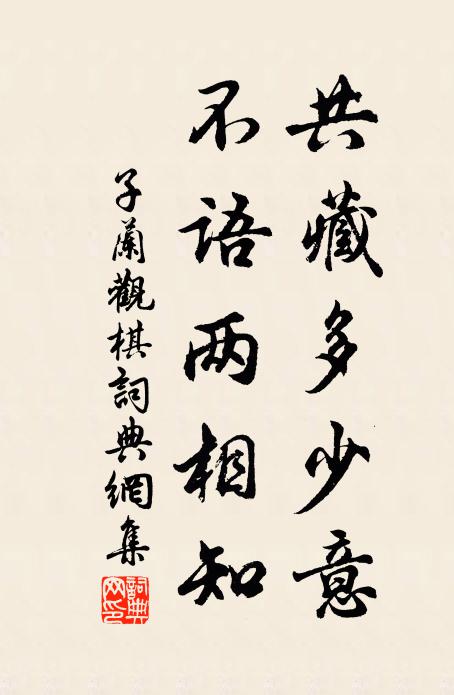 共藏多少意
不語两相知
子蘭觀棋詞典網集
詞典网印